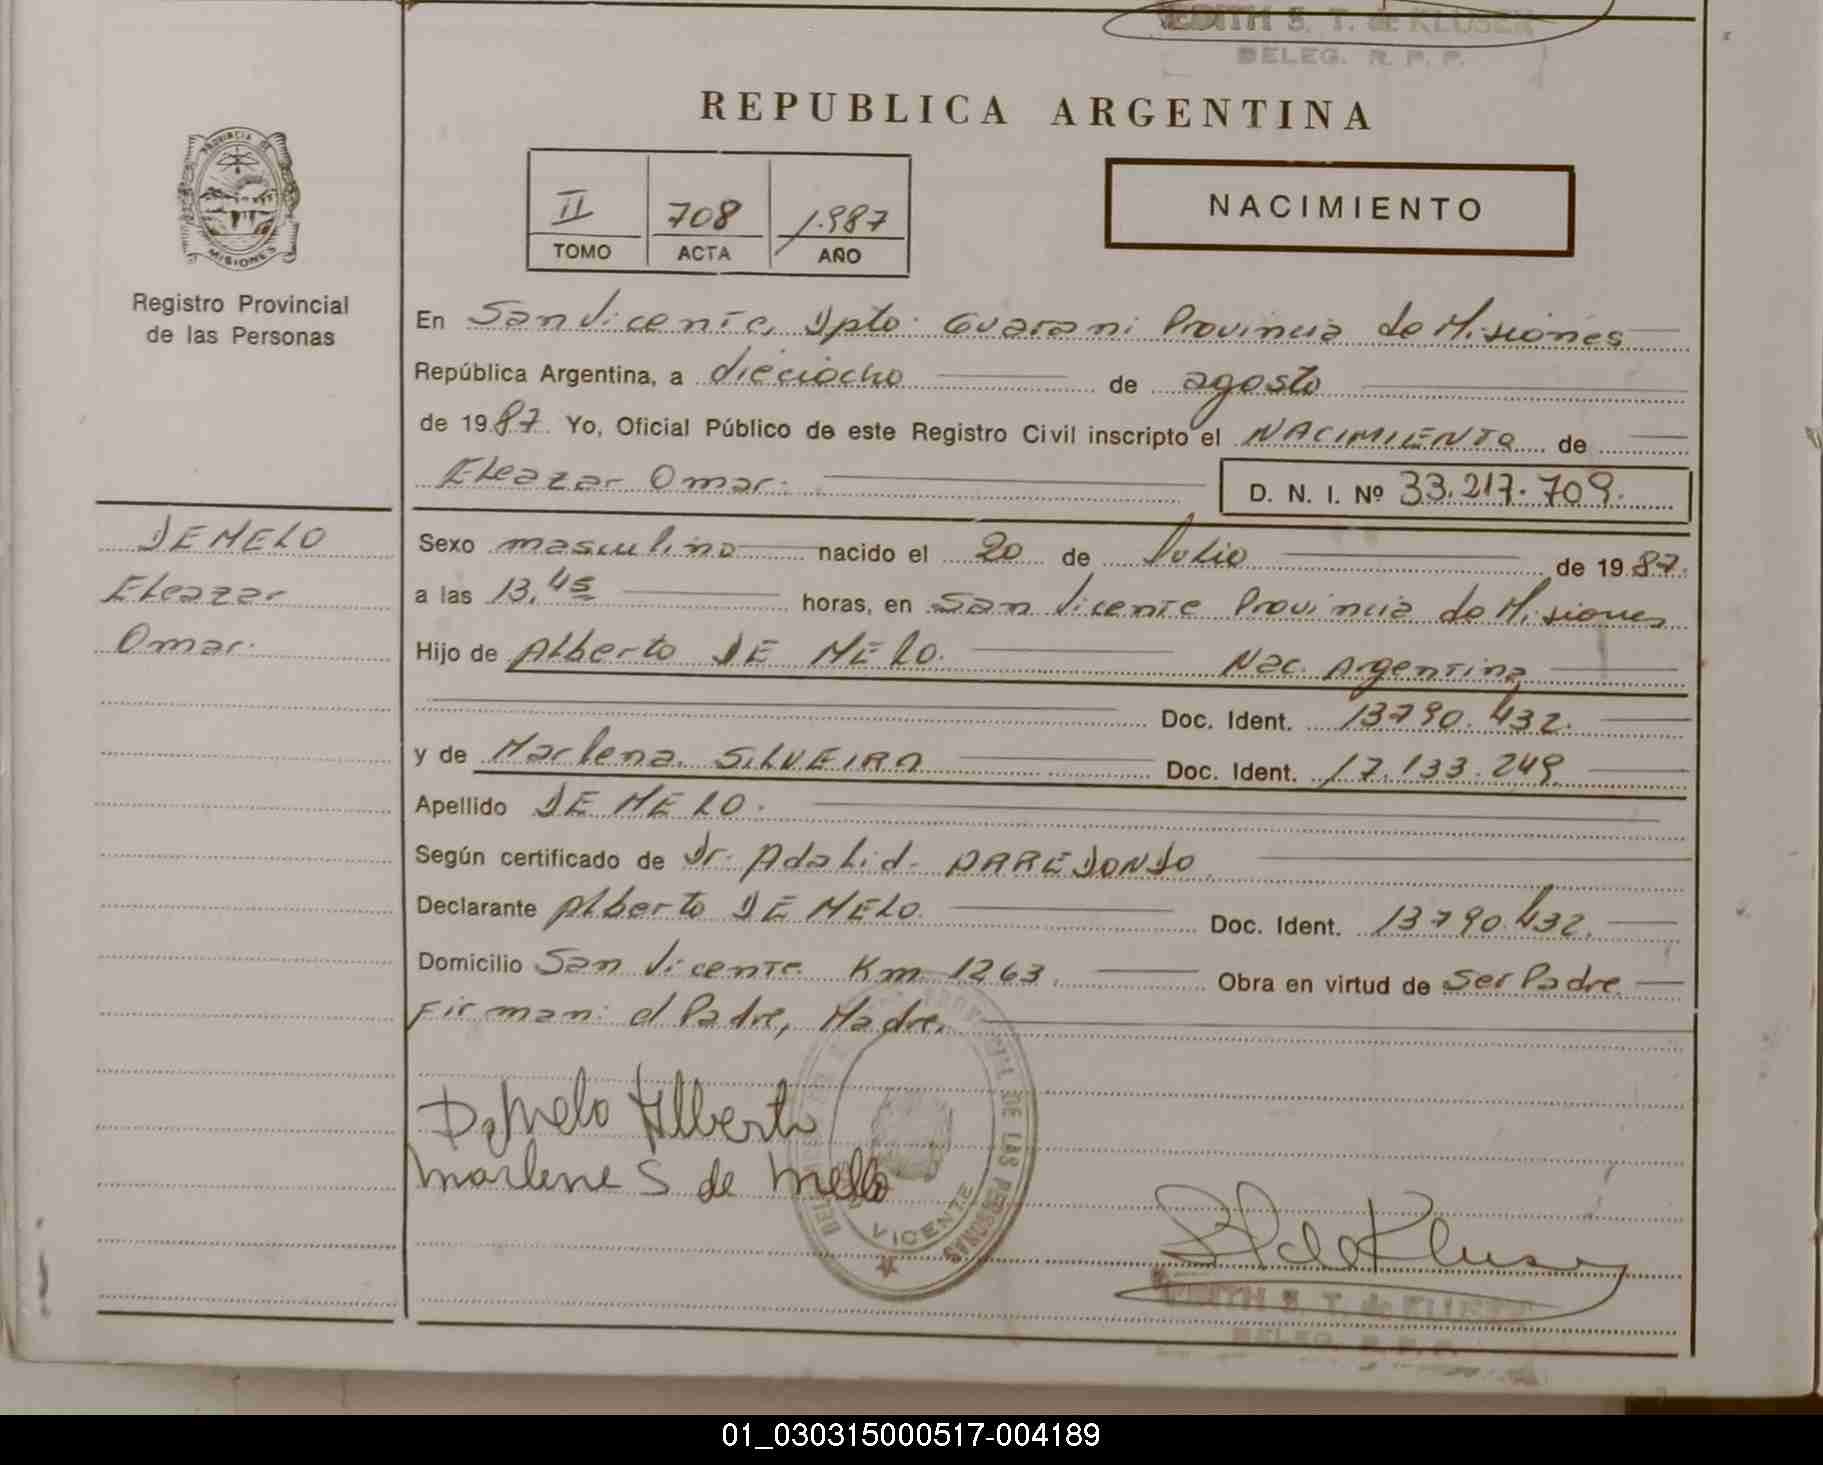 EDITH S. T. de KLUSEN
DELEG. R. P. P.
REPUBLICA ARGENTINA
PROVINCIA DE
MISIONES
Registro Provincial
de las Personas
II 708 1.987
TOMO ACTA AÑO
NACIMIENTO
En San Vicente, Dpto. Guarani Provincia de Misiones
República Argentina, a dieciocho de agosto
de 1987. Yo, Oficial Público de este Registro Civil inscripto el NACIMIENTO de
Eleazar Omar. D. N. I. Nº 33.217.709.
DE MELO
Eleazar
Omar.
Sexo masculino nacido el 20 de Julio de 1987.
a las 13,45 horas, en San Vicente Provincia de Misiones
Hijo de Alberto DE MELO. Nac. Argentina
Doc. Ident. 13790.432.
y de Marlena SILVEIRA Doc. Ident. 17.133.249
Apellido DE MELO.
Según certificado de Dr. Adalid ARREDONDO
Declarante Alberto DE MELO. Doc. Ident. 13790.432.
Domicilio San Vicente Km 1263. Obra en virtud de Ser Padre
Firman: el Padre, Madre.
De Melo Alberto
Marlene S de Mello
DE LAS PERSONAS
VICENTE
EDITH S. T. de KLUSEN
DELEG. R. P. P.
01_030315000517-004189